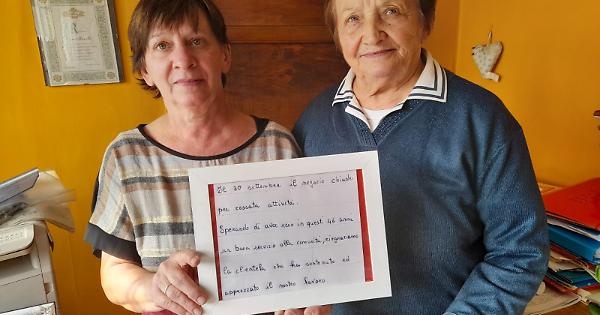 Il 30 settembre il negozio chiude
per cessata attività.
Sperando di aver reso in questi 46 anni
un buon servizio alla comunità, ringraziamo
la clientela che ha sostenuto ed
apprezzato il nostro lavoro